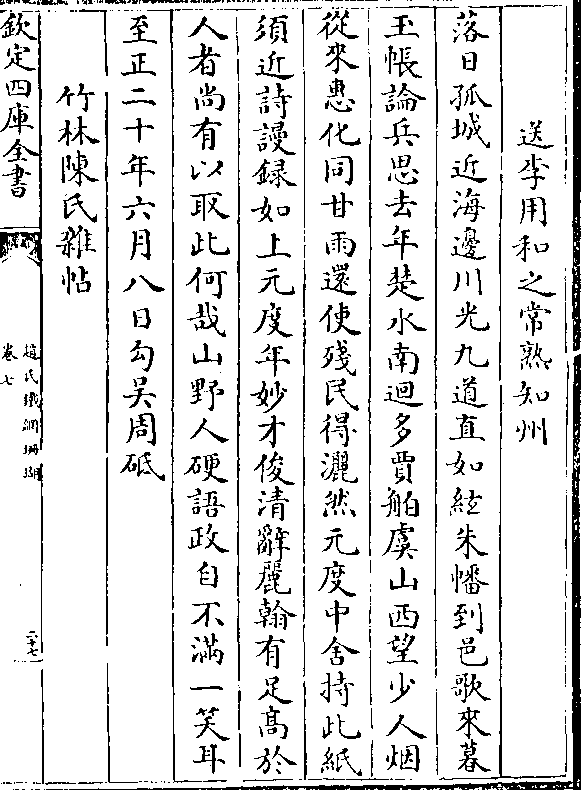 送李用和之常熟知州
落日孤城近海邊川光九道直如絃朱幡到邑歌來暮
玉帳論兵思去年楚水南迴多賈舶虞山西望少人烟
從來惠化同甘雨還使殘民得灑然元度中舍持此紙
須近詩謾録如上元度年妙才俊清辭麗翰有足髙於
人者尚有以取此何哉山野人硬語政自不滿一笑耳
至正二十年六月八日勾吳周砥
竹林陳氏雜帖
欽定四庫全書
趙氏鐵網珊瑚
卷七
二十七